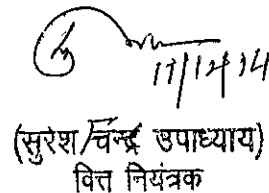 17/12/14
(सुरेश चन्द्र उपाध्याय)
वित्त नियंत्रक